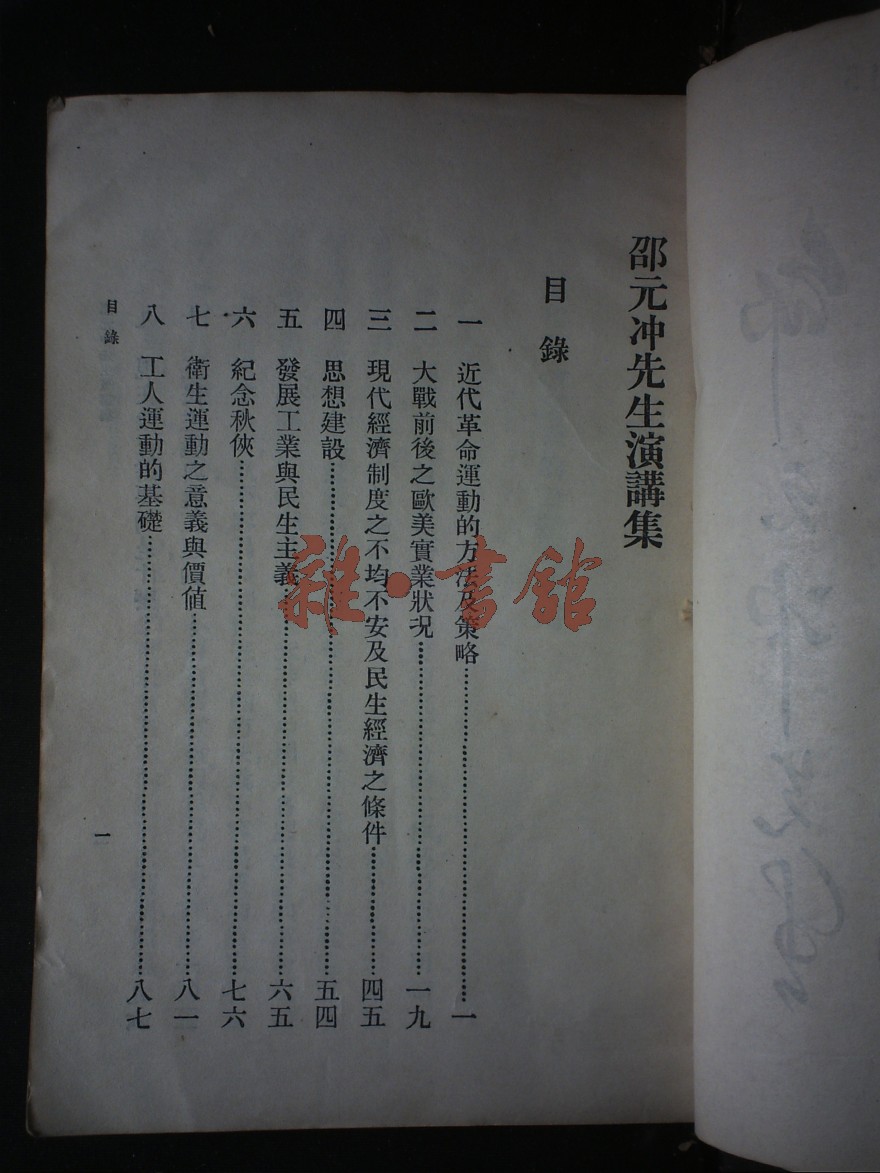 邵元冲先生演講集
目錄
一 近代革命運動的方法及策略……一
二 大戰前後之歐美實業狀况……一九
三 現代經濟制度之不均不安及民生經濟之條件……四五
四 思想建設……五四
五 發展工業與民生主義……六五
六 紀念秋俠……七六
七 衛生運動之意義與價值……八一
八 工人運動的基礎……八七
目錄
一
雜·書館